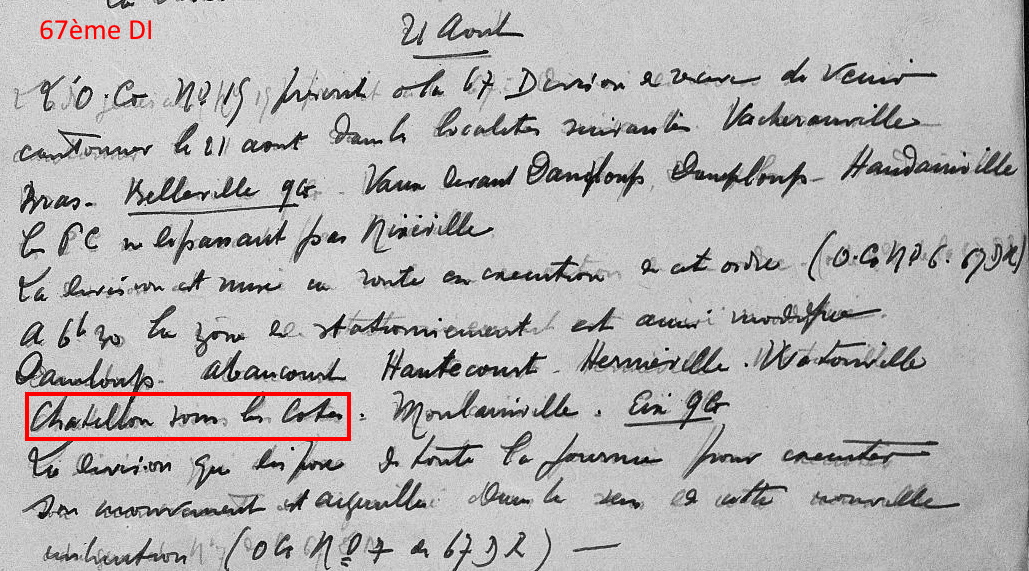 67ème DI
21 Aout
L'O.G. No 19 prescrit à la 67 Division de reserve de venir
cantonner le 21 aout dans les localités suivantes Vacherauville
Bras. Belleville QG. Vaux devant Damploup, Damploup. Haudainville
le PC ne depassant pas Nixéville
La division est mise en route en execution de cet ordre (O.G No 6. 67 DR)
A 6h30 la zône de stationnement est ainsi modifiée.
Damloup. abaucourt Hautecourt. Herméville. Watronville
Chatillon sous les Cotes. Moulainville. Eix QG
La division qui dispose de toute la journée pour executer
son mouvement est aiguillée dans le sens de cette nouvelle
indication (OG No 7 de 67 DR) —